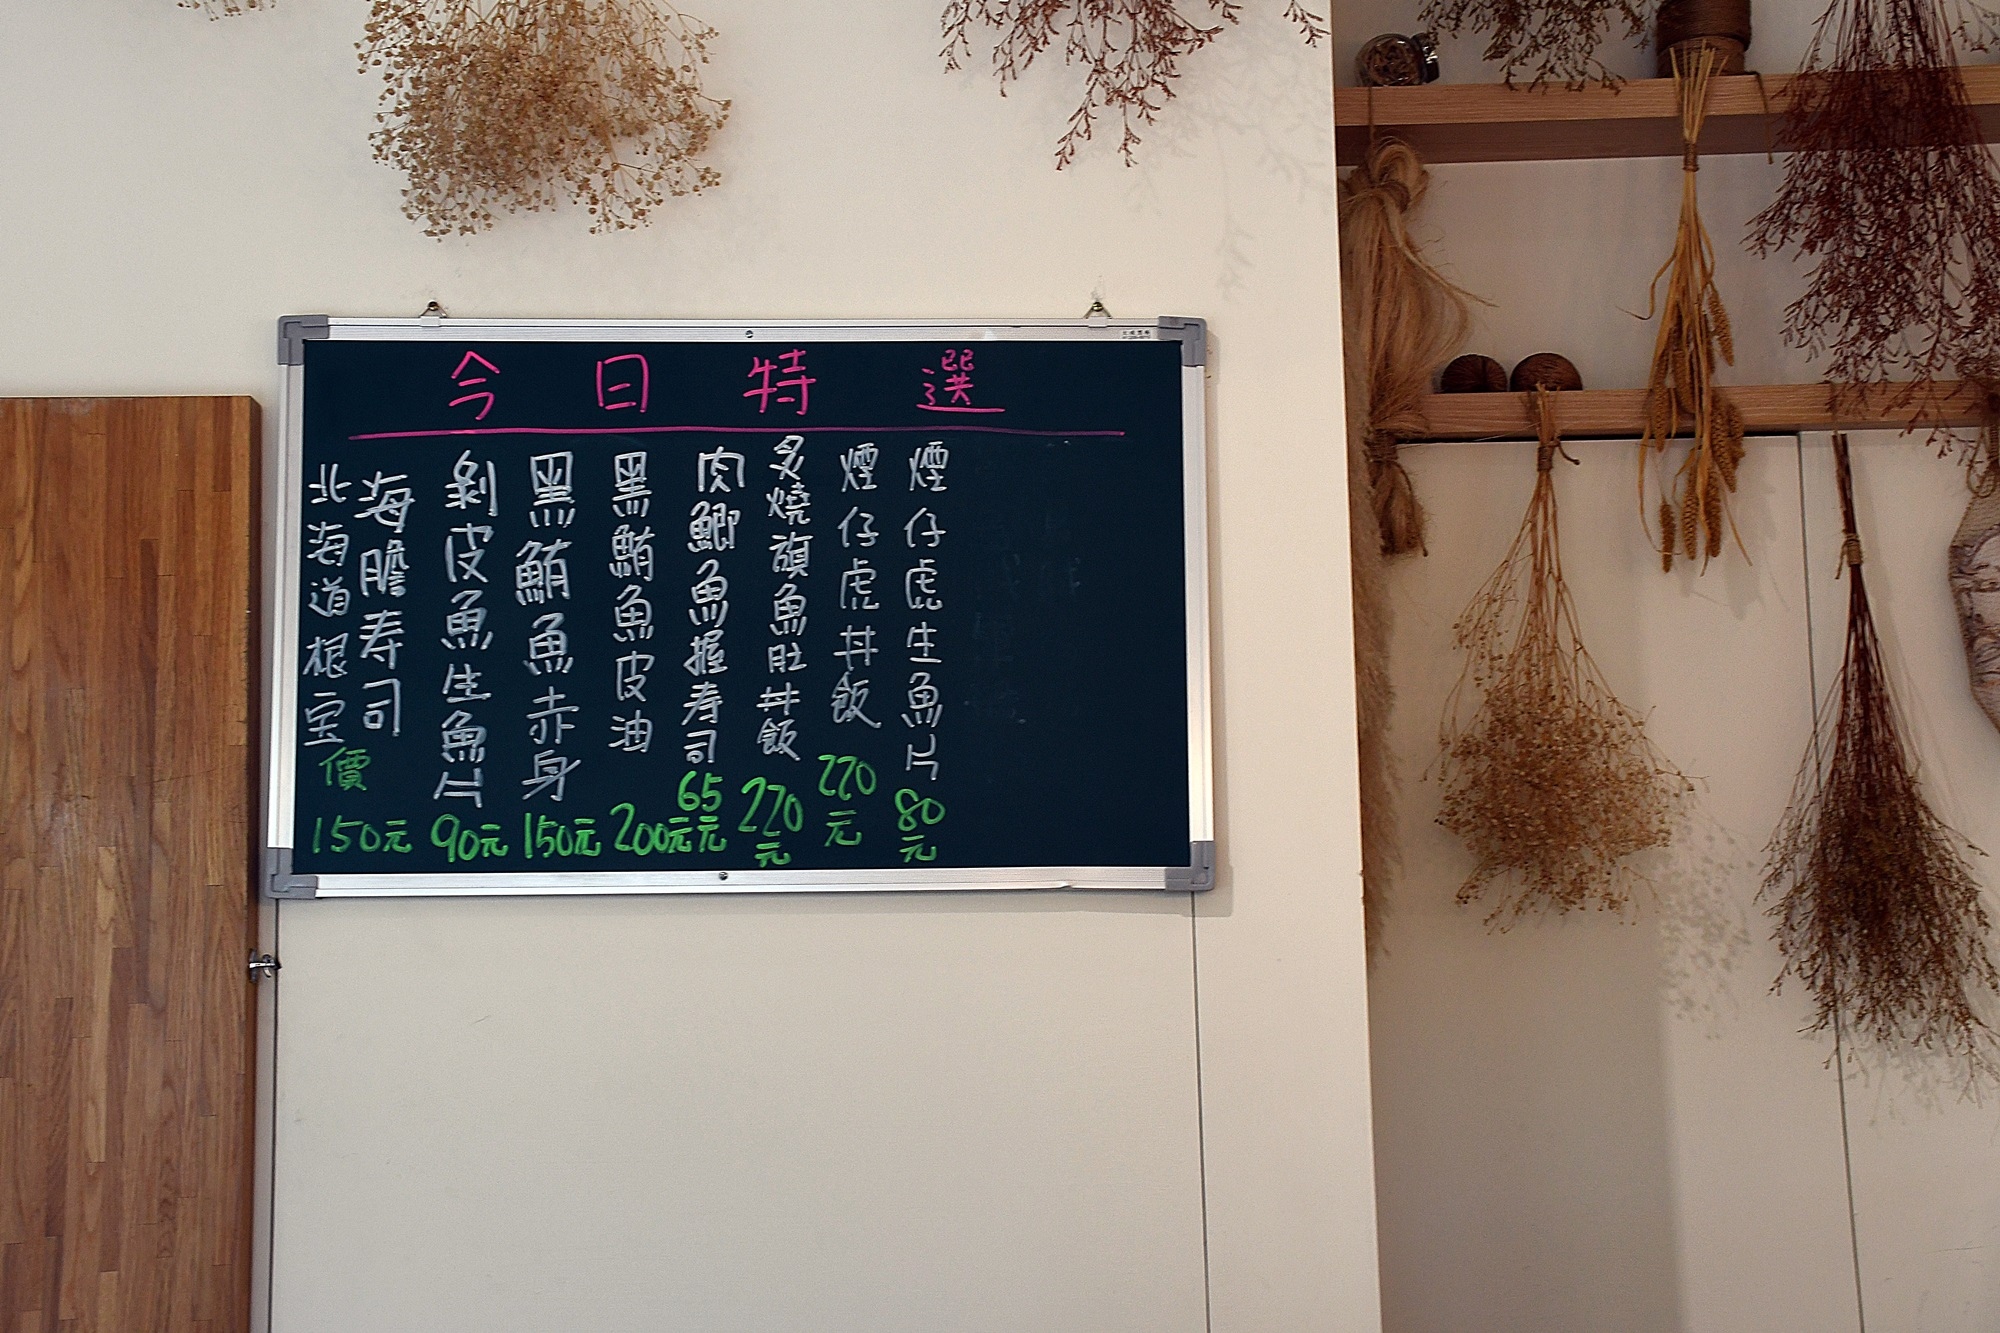 今日特選
煙仔虎生魚片 80元
煙仔虎丼飯 220元
炙燒旗魚肚丼飯 270元
肉鯽魚握寿司 65元
黑鮪魚皮油 200元
黑鮪魚赤身 150元
剝皮魚生魚片 90元
海膽寿司
北海道根室價 150元